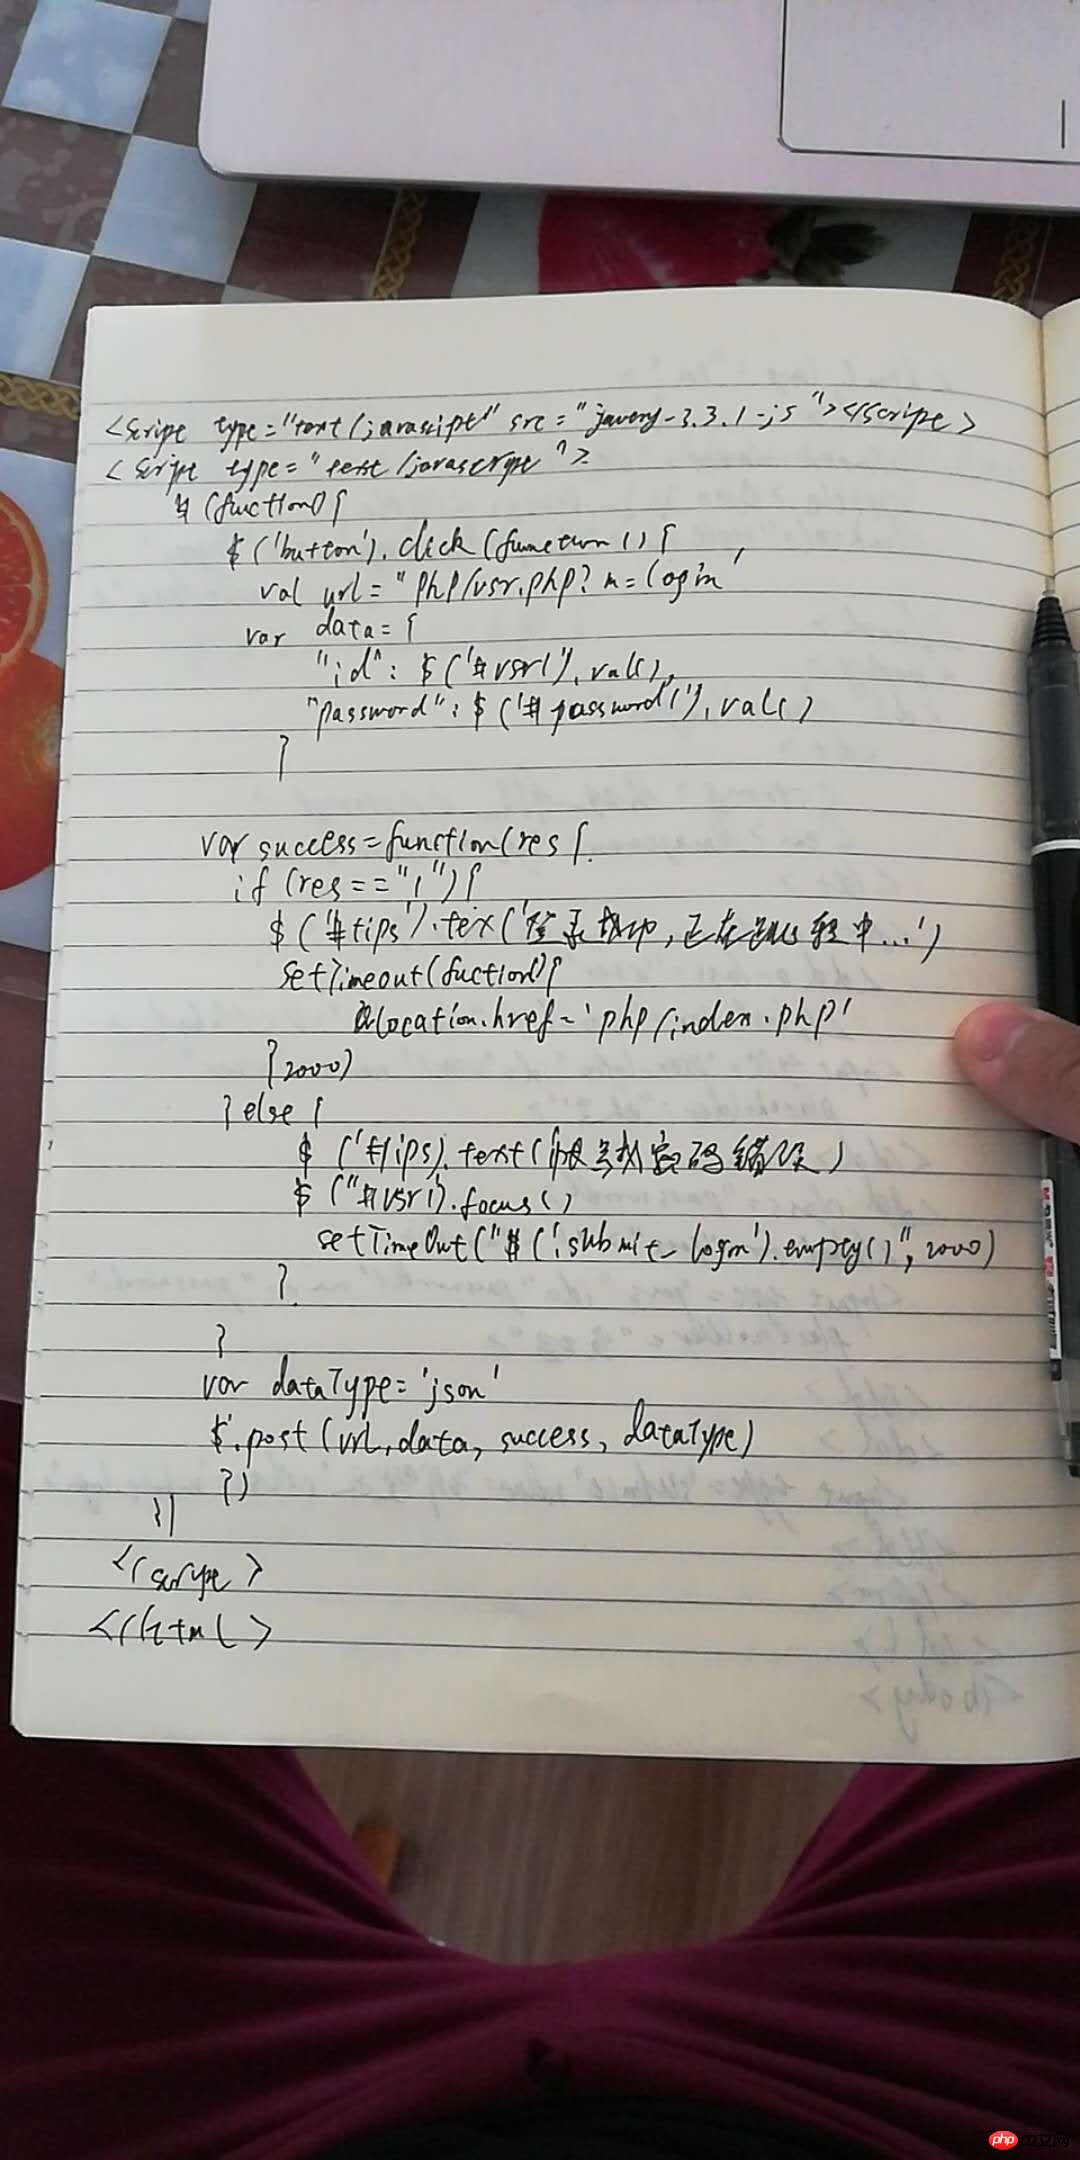 <script type="text/javascript" src="javery-3.3.1-js"></script>
<script type="text/javascript">
$(function(){
$('button').click(function(){
val url="php/usr.php?m=login'
var data={
"id":$('#usr1').val(),
"password":$('#password1').val()
}
var success=function(res{
if(res=="1"){
$('#tips').tex('登录成功,正在跳转中...')
setTimeout(fuction(){
location.href='php/index.php'
}2000)
}else{
$('#tips).text(账号或密码错误)
$("#usr1').focus()
setTimeOut("$('.submit_login').empty()",2000)
}
}
var dataType='json'
$.post(url,data,success,dataType)
})
})
</script>
</html>
php中文网